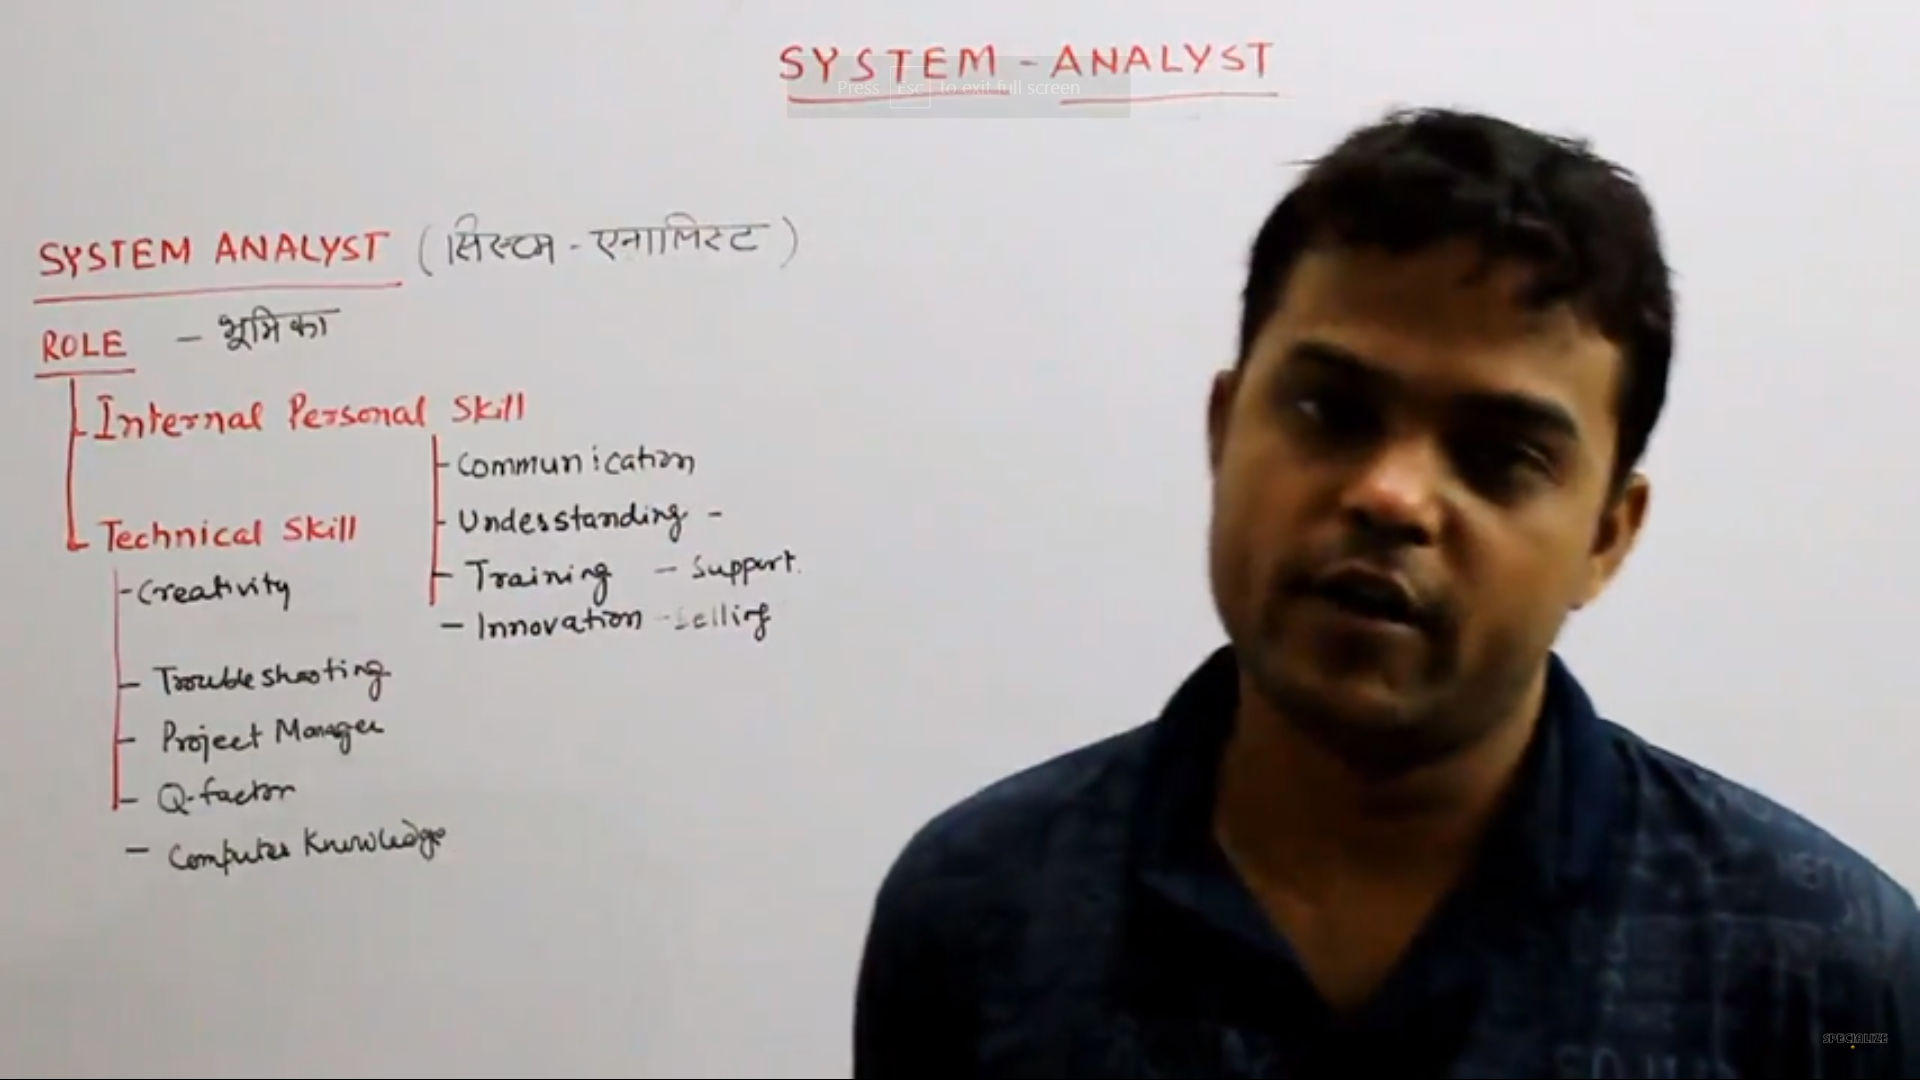 SYSTEM - ANALYST
Press Esc to exit full screen
SYSTEM ANALYST (सिस्टम - एनालिस्ट)
ROLE - भूमिका
Internal Personal Skill
Communication
Understanding -
Training - Support.
- Innovation - Selling
Technical Skill
- Creativity
- Trouble shooting
- Project Manager
- Q-factor
- Computer Knowledge
SPECIALIZE